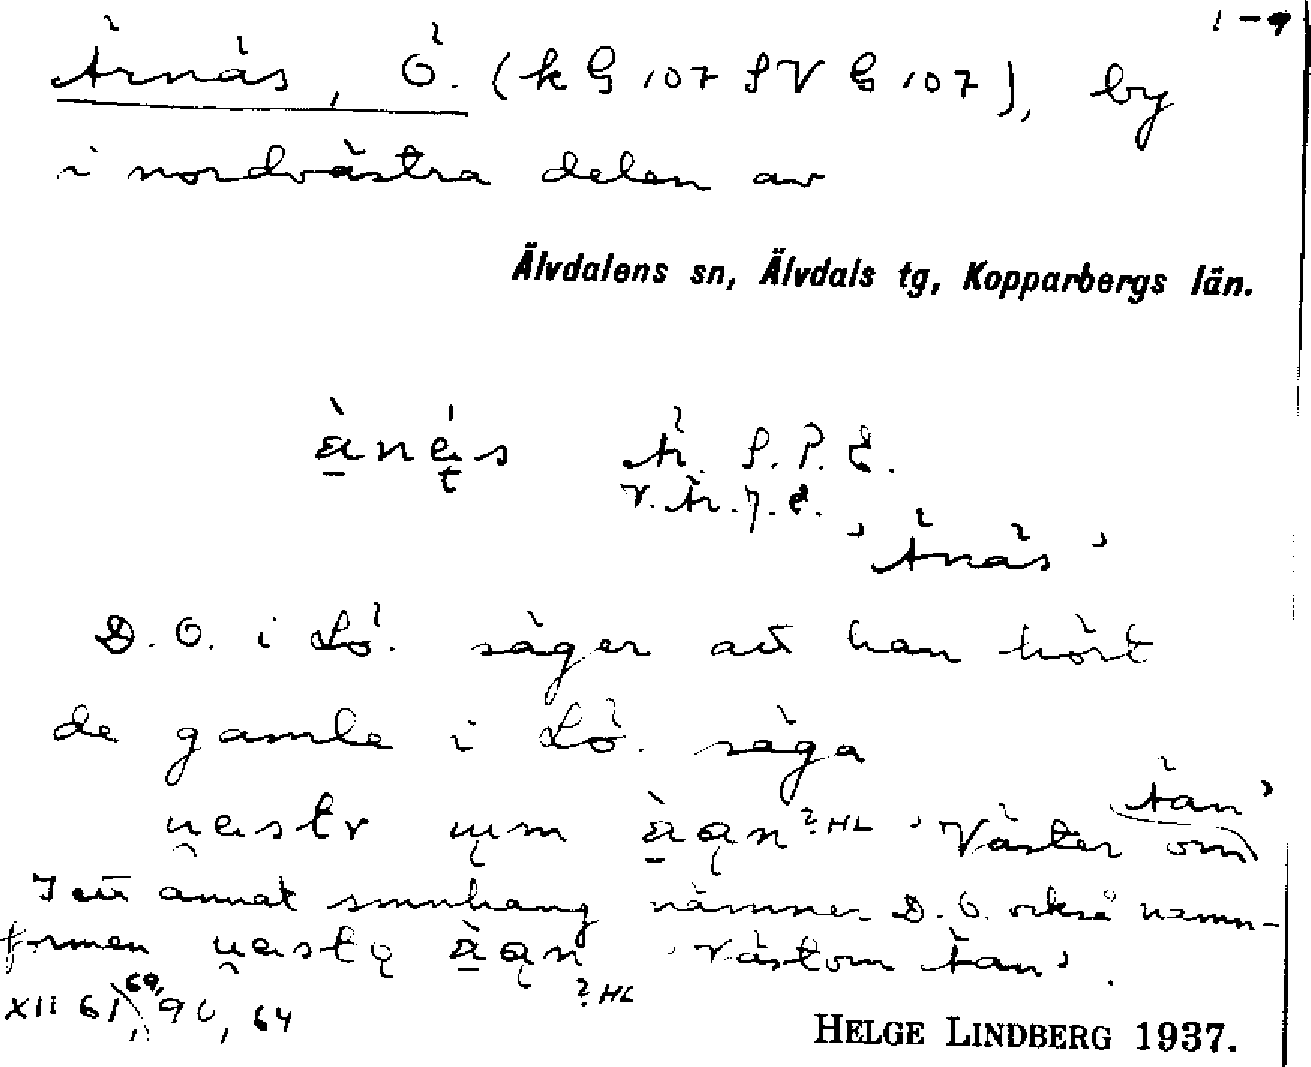 1-9
Ärnäs, Ö. (k G 107 S V G 107), by
i nordvästra delen av
Älvdalens sn, Älvdals tg, Kopparbergs län.
Är. S. P. E.
V. Är. J. E.
'Änäs'
D. O. i Lö. säger att han hört
de gamle i Lö. säga
?HL 'Väster om Åan'
I ett annat smnhang nämner D. O. också namn-
formen 'västom Åan'.
?HL
XII 61, 60, 90, 64
HELGE LINDBERG 1937.